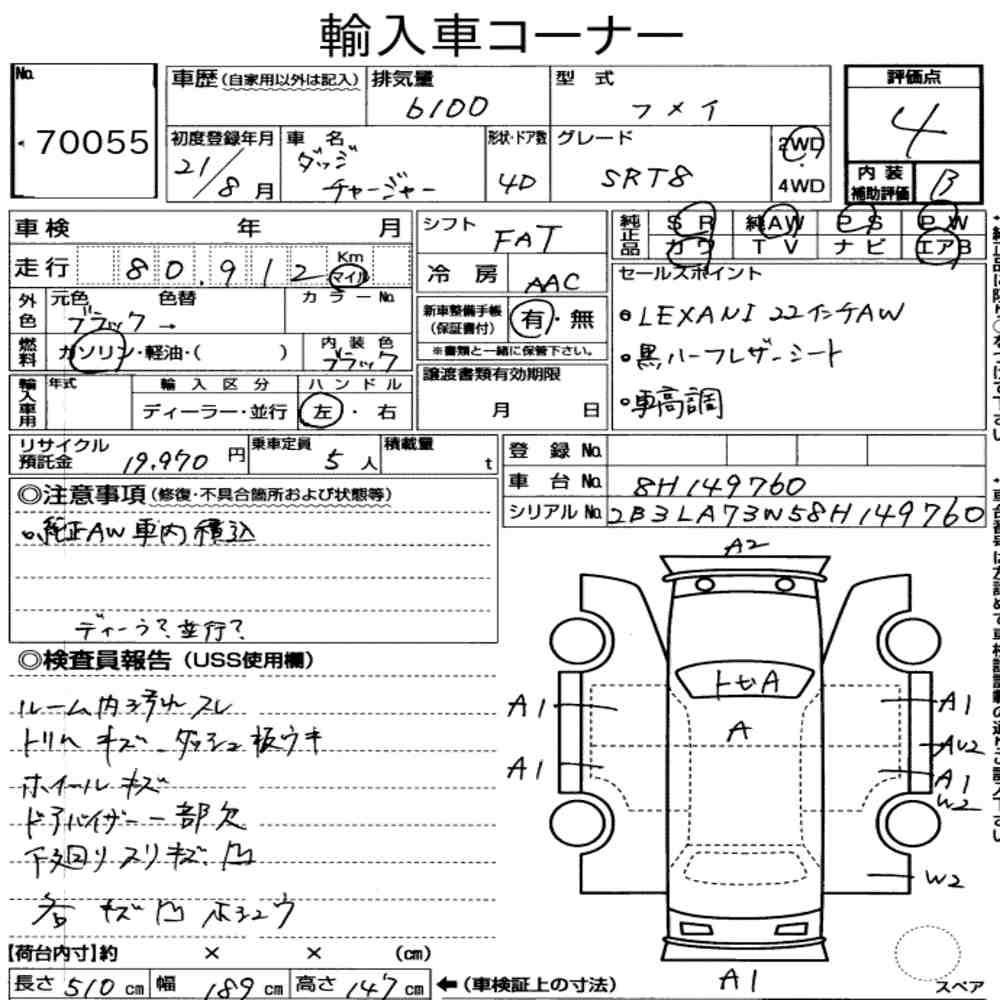 輸入車コーナー
No.
70055
車歴(自家用以外は記入)
排気量
6100
型 式
フメイ
評価点
4
初度登録年月
21/8月
車 名
ダッジ
チャージャー
形状・ドア数
4D
グレード
SRT8
2WD
・
4WD
内 装
補助評価
B
車検 年 月
シフト
FAT
純正品
SR 純AW PS PW
カワ TV ナビ エアB
走行 80,912 Km
マイル
冷 房
AAC
セールスポイント
外色
元色 色替
カラーNo.
ブラック →
新車整備手帳
(保証書付)
有・無
※書類と一緒に保管下さい。
・LEXANI 22インチAW
・黒ハーフレザーシート
・車高調
燃料
ガソリン・軽油・( )
内装色
ブラック
譲渡書類有効期限
月 日
輸入車用
年式
輸入区分
ハンドル
ディーラー・並行
左・右
リサイクル
預託金 19,970 円
乗車定員
5人
積載量
t
登 録 No.
車 台 No. 8H149760
シリアルNo. 2B3LA73W58H149760
◎注意事項(修復・不具合箇所および状態等)
・純正AW車内積込
ディーラ?並行?
◎検査員報告(USS使用欄)
ルーム内汚れ スレ
トリム キズ ダッシュ板ウキ
ホイールキズ
ドアバイザー一部欠
下廻り スリキズ 凹
各 キズ 凹
A2
トセA
A
A1
A1
A1
AU2
A1
W2
W2
A1
スペア
【荷台内寸】約 × × (cm)
長さ 510 cm 幅 189 cm 高さ 147 cm ←(車検証上の寸法)